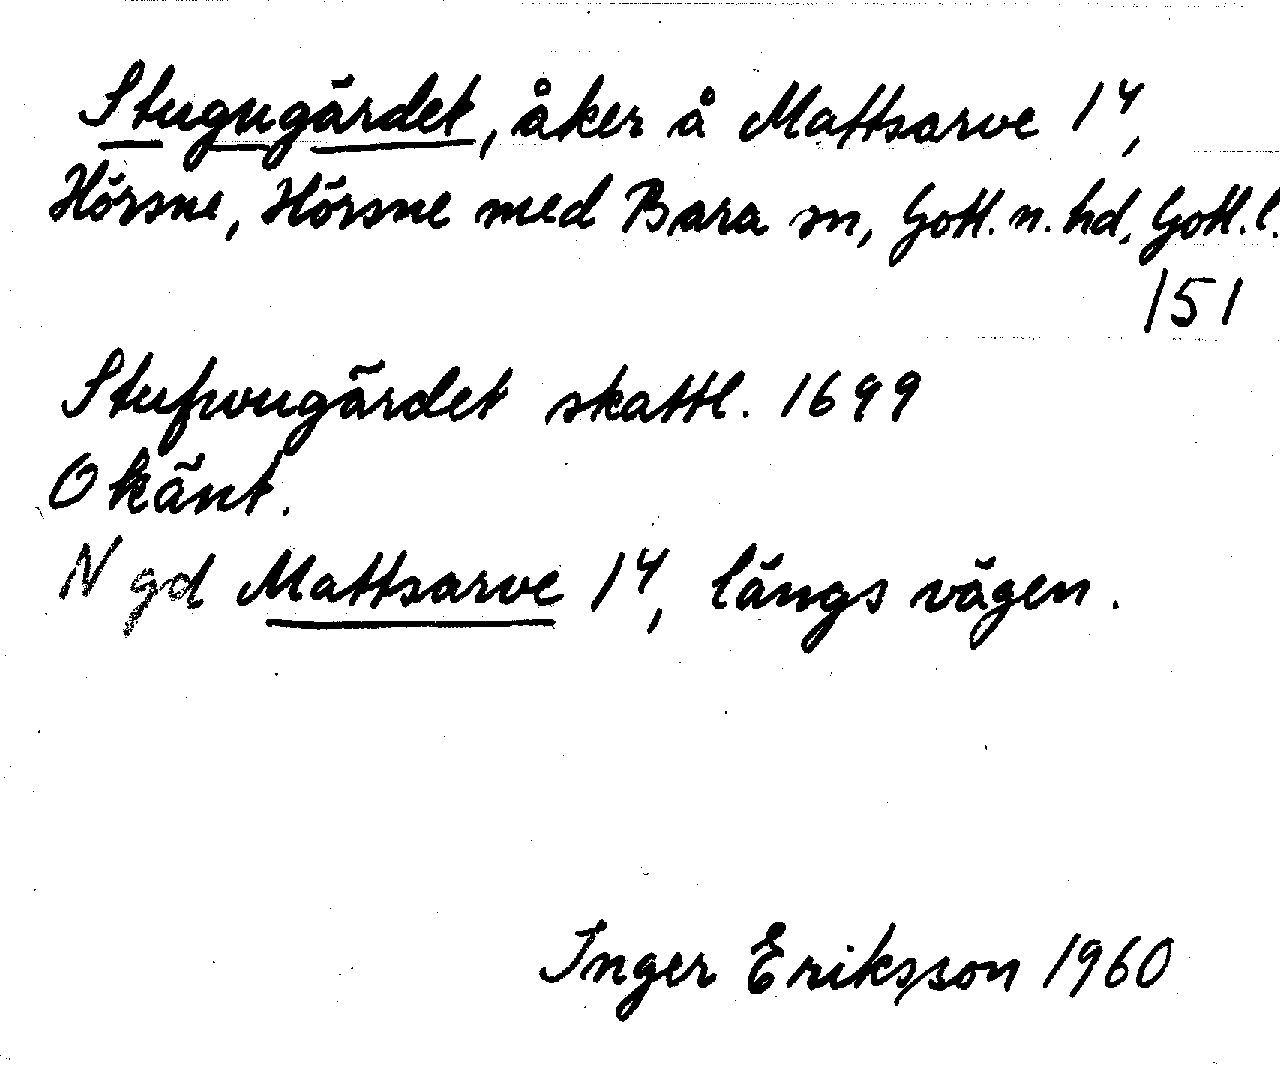 Stugugärdet, åker å Mattsarve 1⁴,
Hörsne, Hörsne med Bara sn, Gotl. n. hd, Gotl. l.
151
Stufwugärdet skattl. 1699
Okänt.
N gd Mattsarve 1⁴, längs vägen.
Inger Eriksson 1960